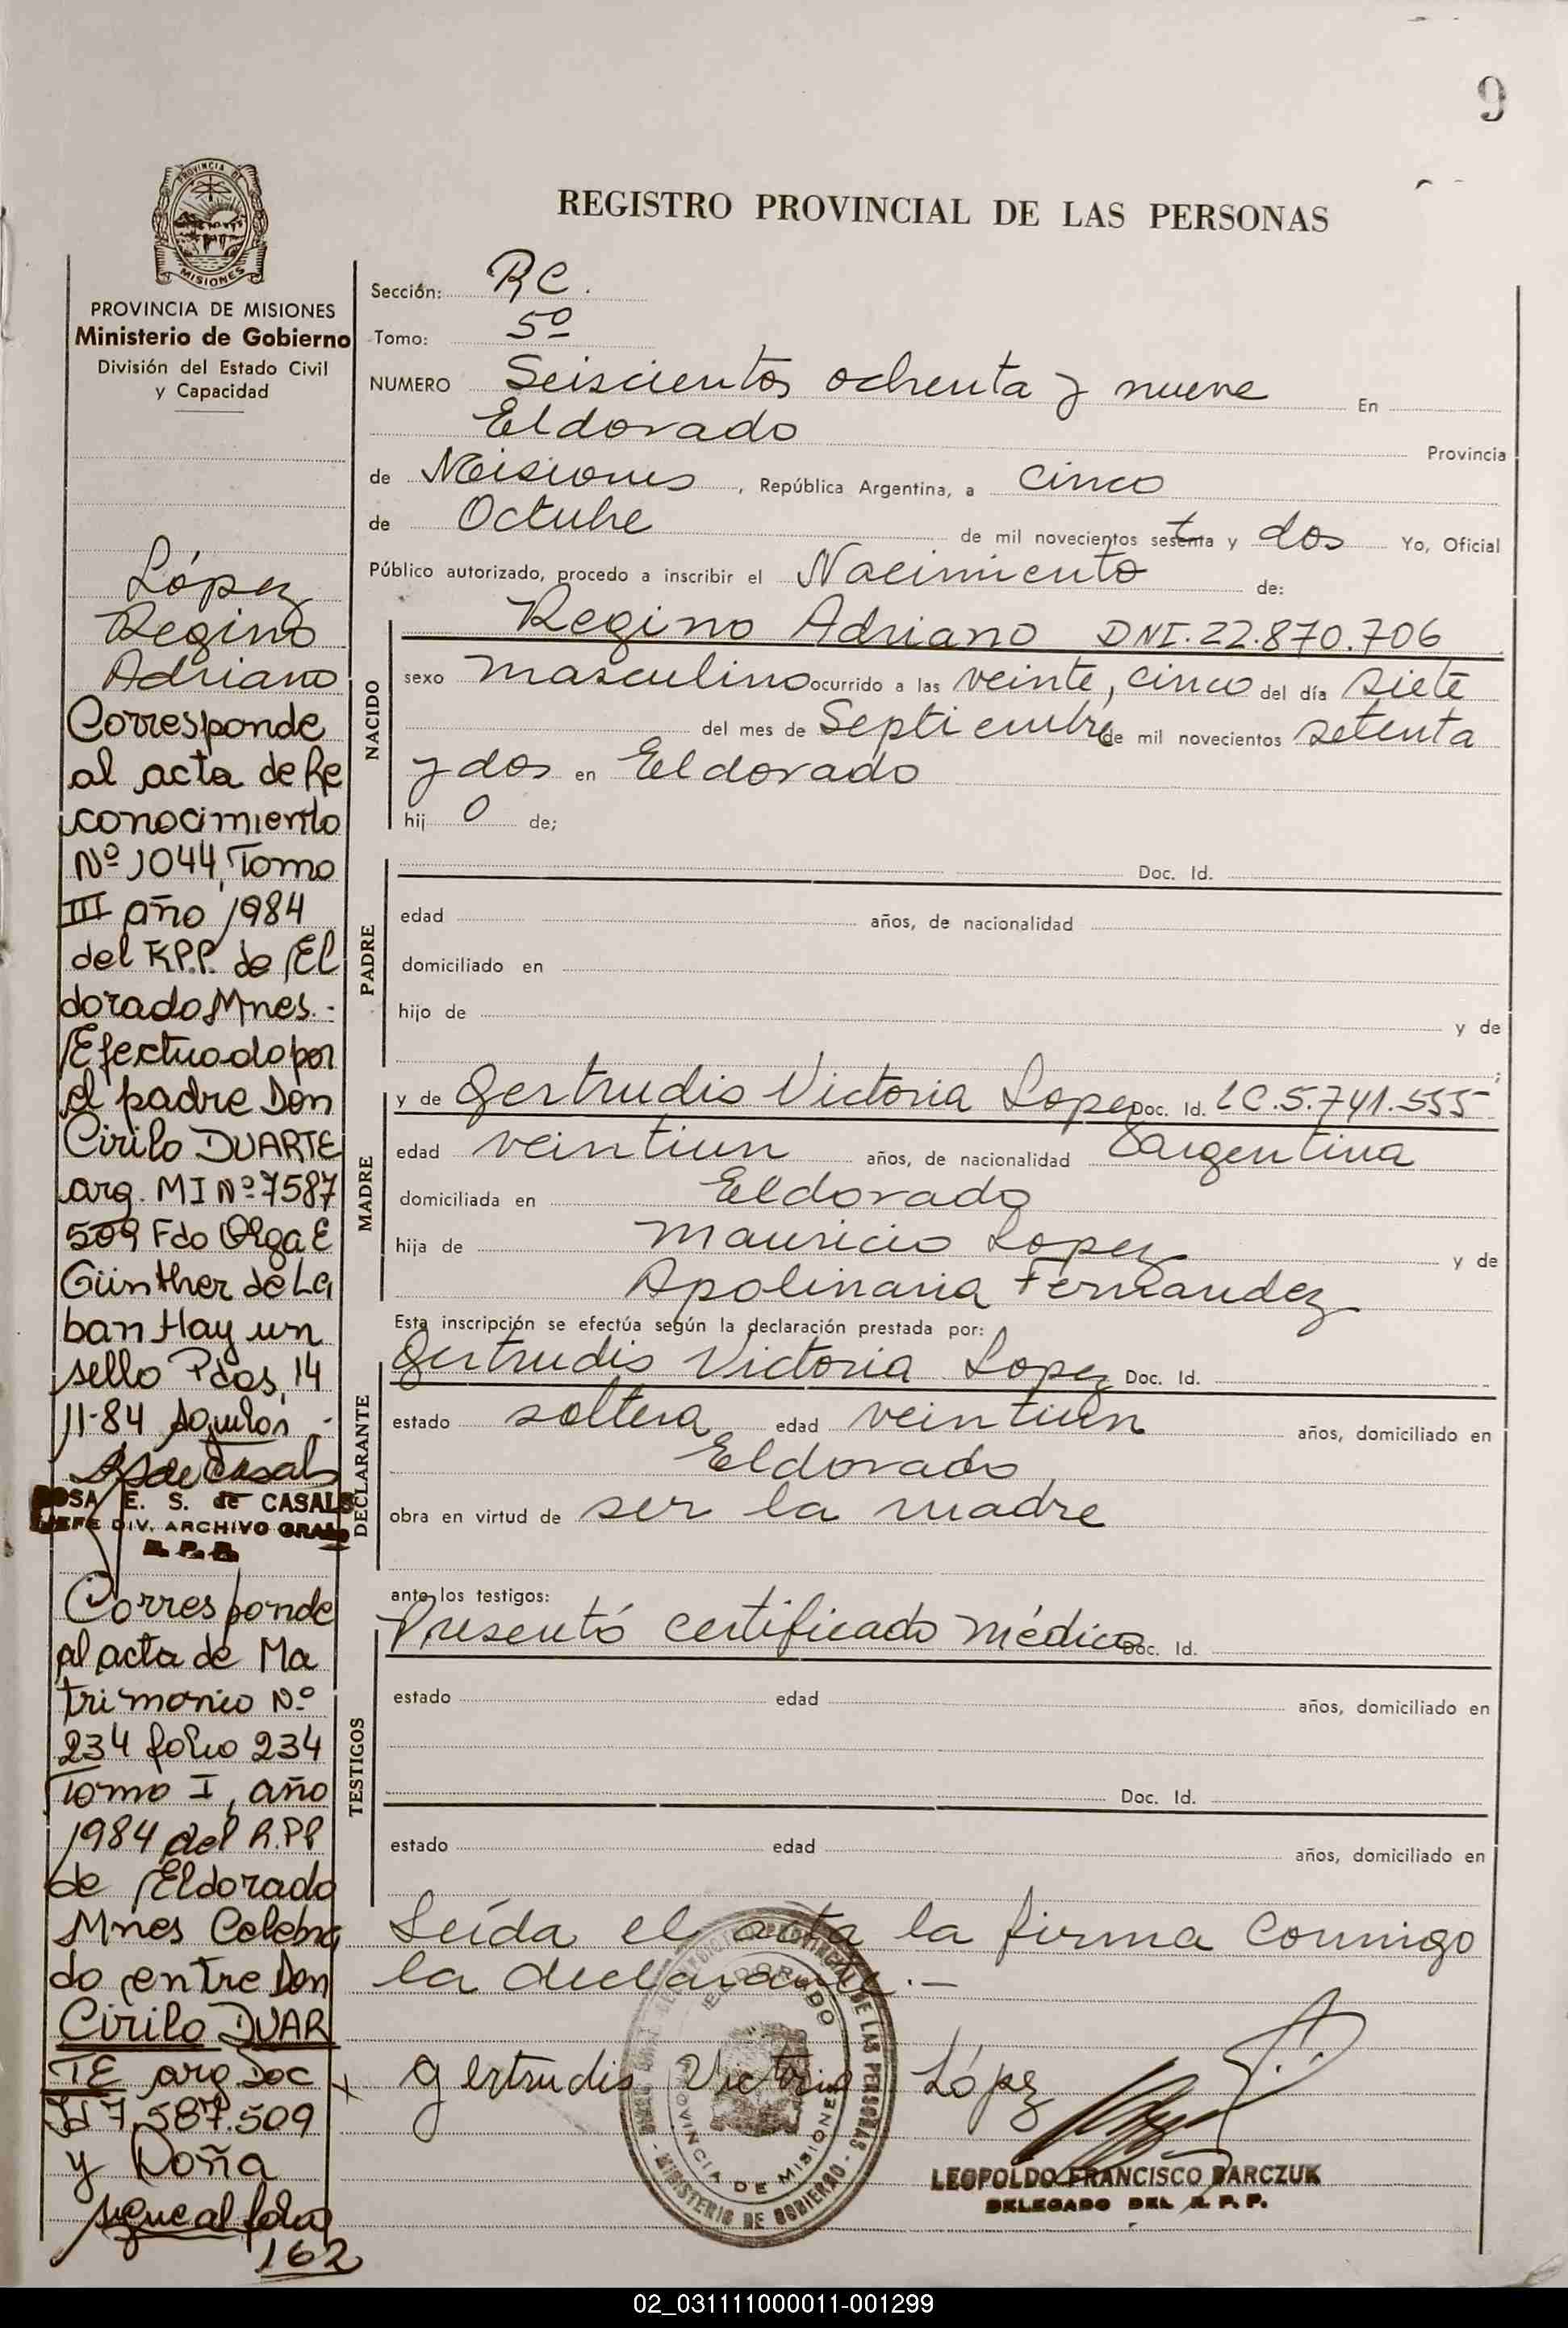 9
PROVINCIA DE
MISIONES
PROVINCIA DE MISIONES
Ministerio de Gobierno
División del Estado Civil
y Capacidad
López
Regino
Adriano
Corresponde
al acta de Re
conocimiento
Nº 1044, Tomo
III año 1984
del R.P.P. de El
dorado Mnes.-
Efectuado por
el padre Don
Cirilo DUARTE
arg. MI Nº 7587
509 Fdo Olga E
Günther de La
ban Hay un
sello Pdas, 14
11-84
ROSA E. S. de CASALS
JEFE DIV. ARCHIVO GRAL
R. P. P.
Corresponde
al acta de Ma
trimonio Nº
234 folio 234
Tomo I, año
1984 del R.PP
de Eldorado
Mnes Celebra
do entre Don
Cirilo DUAR
TE arg Doc
Id 7.587.509
y Doña
sigue al folio
162
REGISTRO PROVINCIAL DE LAS PERSONAS
Sección: RC.
Tomo: 5º
NUMERO Seiscientos ochenta y nueve En
Eldorado Provincia
de Misiones, República Argentina, a cinco
de Octubre de mil novecientos setenta y dos Yo, Oficial
Público autorizado, procedo a inscribir el Nacimiento de:
NACIDO
Regino Adriano DNI.22.870.706
sexo masculino ocurrido a las veinte, cinco del día siete
del mes de Septiembre de mil novecientos setenta
y dos en Eldorado
hij o de;
PADRE
Doc. Id.
edad años, de nacionalidad
domiciliado en
hijo de y de
;
MADRE
y de Gertrudis Victoria Lopez Doc. Id. LC.5.741.555
edad veintiun años, de nacionalidad argentina
domiciliada en Eldorado
hija de Mauricio Lopez y de
Apolinaria Fernandez
Esta inscripción se efectúa según la declaración prestada por:
DECLARANTE
Gertrudis Victoria Lopez Doc. Id.
estado soltera edad veintiun años, domiciliado en
Eldorado,
obra en virtud de ser la madre
ante los testigos:
TESTIGOS
Presentó certificado médico Doc. Id.
estado edad años, domiciliado en
Doc. Id.
estado edad años, domiciliado en
Leída el acta la firma conmigo
la declarante.-
x Gertrudis Victoria López
REGISTRO PROVINCIAL DE LAS PERSONAS
ELDORADO
PROVINCIA DE MISIONES
- MINISTERIO DE GOBIERNO -
LEOPOLDO FRANCISCO BARCZUK
DELEGADO DEL R. P. P.
02_031111000011-001299